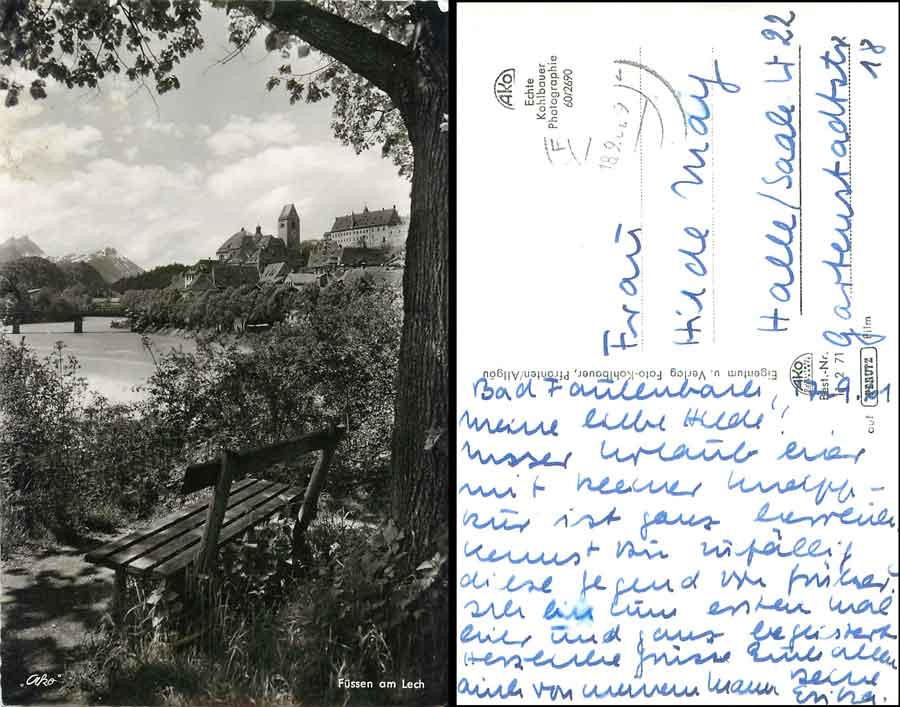 „Ako"
Füssen am Lech
AKO
Echte
Kohlbauer
Photographie
60/2690
F
18.9.
Frau
Hilde May
Halle/Saale H 22
Gartenstadtstr.
18
Eigentum u. Verlag Foto-Kohlbauer, Pfronten/Allgäu
AKO
Best-Nr.
2 71
auf PERUTZ film
Bad Faulenbach, 9.61
Meine liebe Hilde!
Unser Urlaub hier
mit kleiner Kneipp-
kur ist ganz herrlich.
Kennst Du zufällig
diese Gegend von früher?
Ich bin zum ersten Mal
hier und ganz begeistert.
Herzliche Grüsse Euch allen
auch von meinem Mann Deine
Erika.